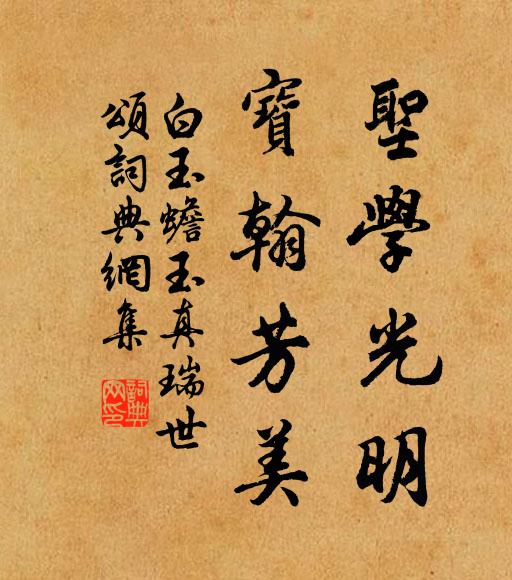 聖學光明
寶翰芳美
白玉蟾玉真瑞世
頌詞典網集
詞典网印